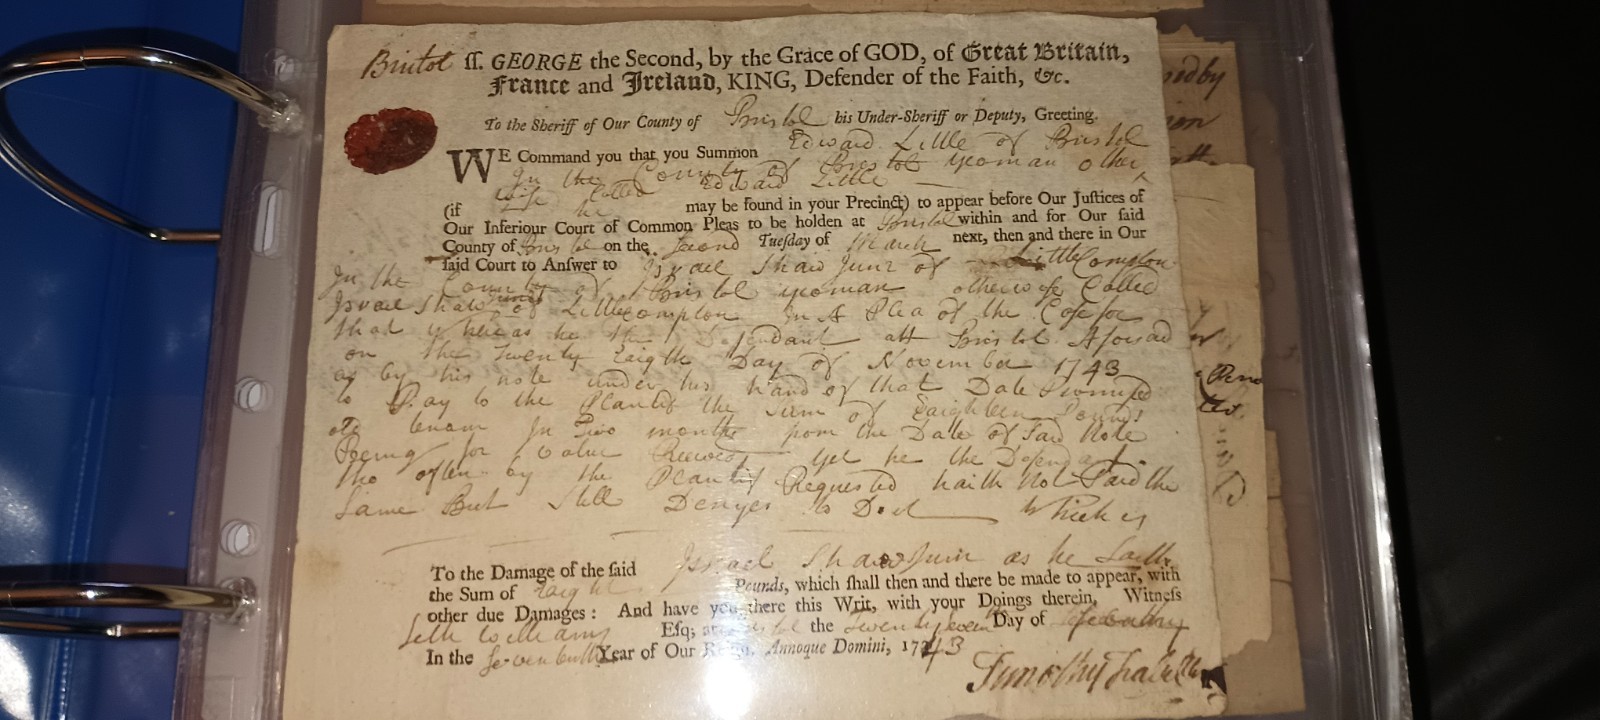 Bristol ſſ. GEORGE the Second, by the Grace of GOD, of Great Britain,
France and Ireland, KING, Defender of the Faith, &c.
To the Sheriff of Our County of Bristol his Under-Sheriff or Deputy, Greeting.
WE Command you that you Summon Edward Little of Bristol
In the County of Bristol yeoman other
wise Called Edward Little
(if he may be found in your Precinct) to appear before Our Juſtices of
Our Inferiour Court of Common Pleas to be holden at Bristol within and for Our ſaid
County of Bristol on the Second Tueſday of March next, then and there in Our
ſaid Court to Anſwer to Israel Shaw Junr of Little Compton
In the County of Bristol yeoman otherwise Called
Israel Shaw Junr of Little Compton In A Plea of the Case for
that Whereas he the Defendant att Bristol Aforsaid
on the Twenty Eaigth Day of November 1743
as by his note under his hand of that Date Promised
to Pay to the Plantif the Sum of Eaighteen Pounds
old tenour In Two months from the Date of Said Note
Being for Value Received Yet he the Defendat
tho often by the Plantif Requested hath Not Paid the
Same But Still Denyes to Do it Which is
To the Damage of the ſaid Israel Shaw Junr as he Saith
the Sum of Eaight Pounds, which ſhall then and there be made to appear, with
other due Damages: And have you there this Writ, with your Doings therein, Witneſs
Seth Williams Eſq; at Bristol the Twentyseven Day of February
In the Seventeenth Year of Our Reign, Annoque Domini, 1743
Timothy